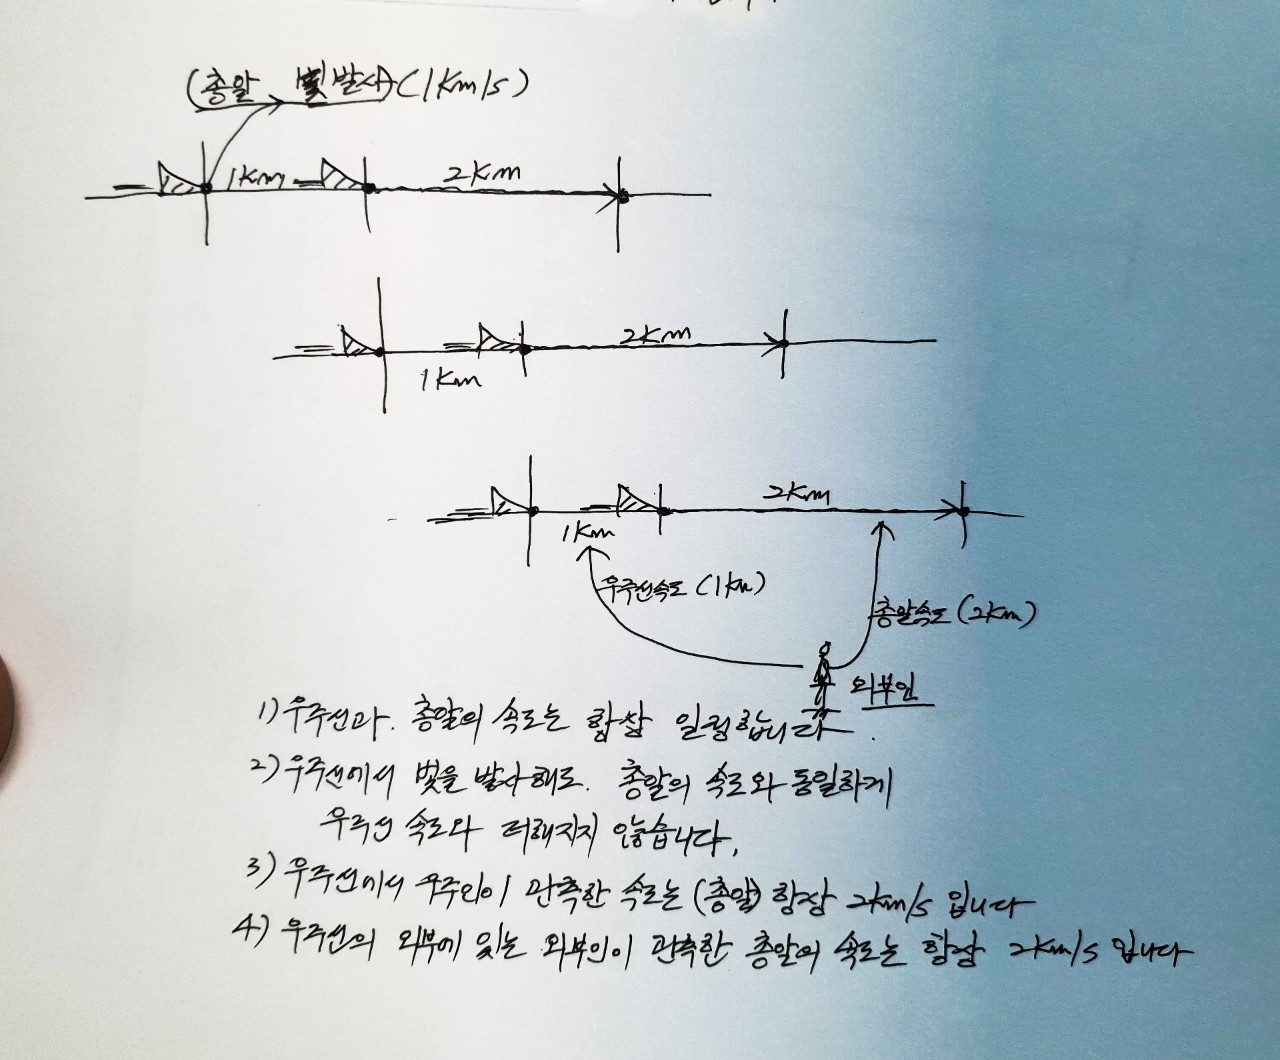 (총알 빛발사)(1km/s)
1km 2km
2km
1km
2km
1km
우주선속도 (1km)
총알속도 (2km)
외부인
1) 우주선과. 총알의 속도는 항상 일정합니다.
2) 우주선에서 빛을 발사해도. 총알의 속도와 동일하게
우주선 속도와 더해지지 않습니다.
3) 우주선에서 우주인이 관측한 속도는 (총알) 항상 2km/s 입니다
4) 우주선의 외부에 있는 외부인이 관측한 총알의 속도는 항상 2km/s 입니다